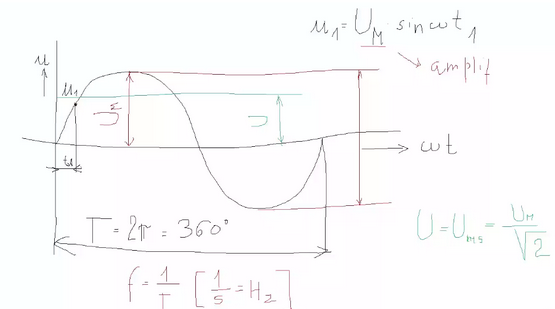 u₁ = U_M · sin ωt₁
amplif
u
u₁
U_M
U
t₁
ωt
T = 2π = 360°
U = U_ms = U_M / √2
f = 1/T [1/s = Hz]